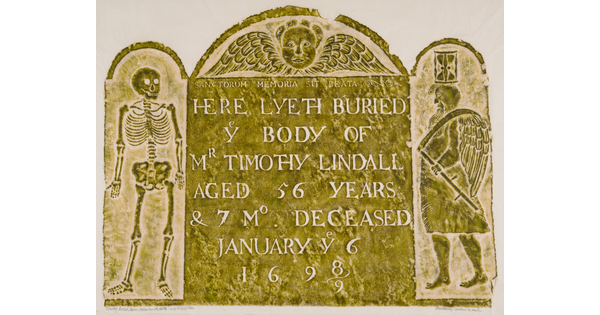 SANCTORUM MEMORIA SIT BEATA
HERE LYETH BURIED
yͤ BODY OF
Mᴿ TIMOTHY LINDALL
AGED 56 YEARS
& 7 Mᴼ DECEASED
JANUARY yͤ 6
169 8/9